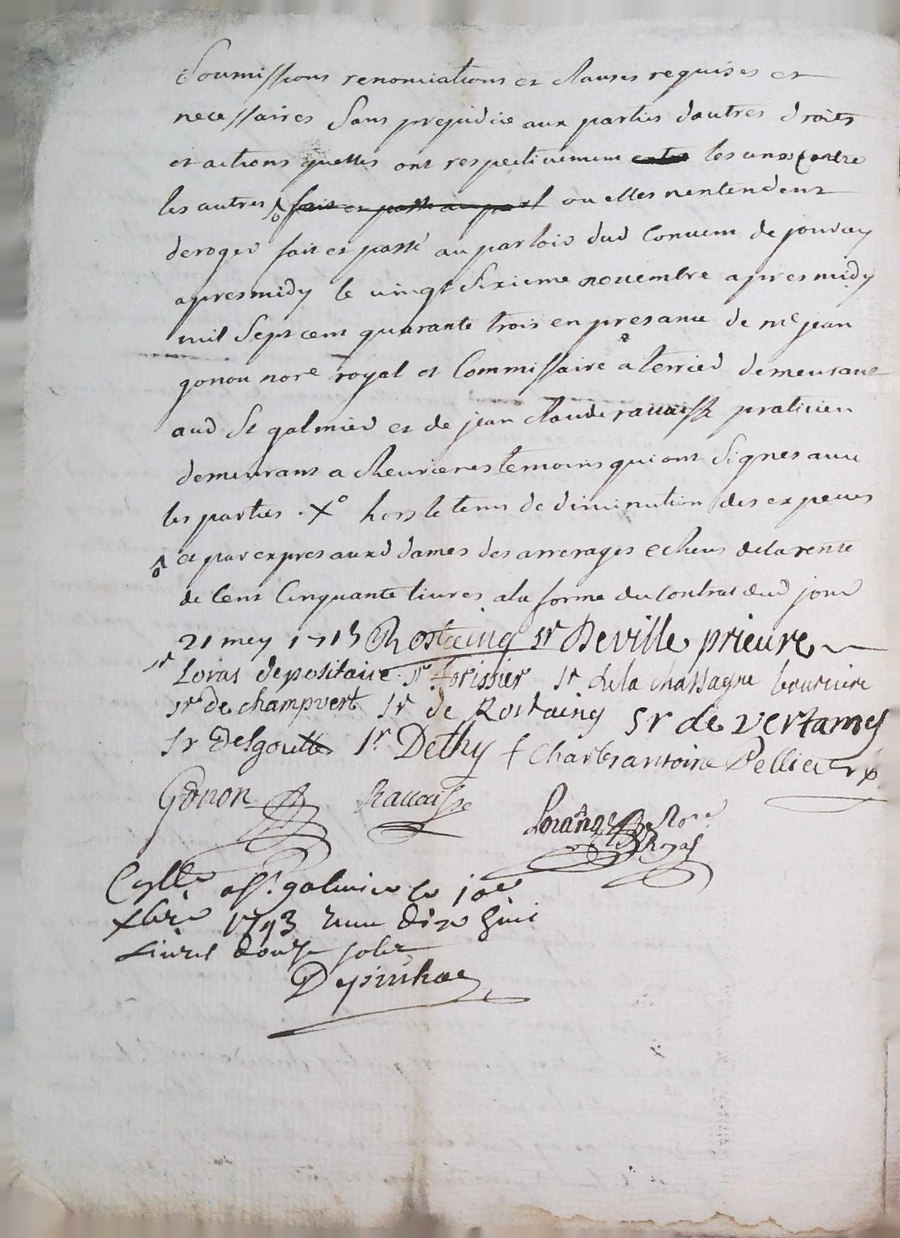 Soumissions renonciations et clauses requises et
necessaires sans prejudice aux parties dautres droits
et actions quelles ont respectivement les unes contre
les autres fait et passé au parl ou elles nentendent
deroger fait et passé au parloir dud Convent de jourcey
apresmidy le vingt sixieme novembre apresmidy
mil sept cent quarante trois en presance de me jean
gonon nore royal et Commissaire a terrier demeurant
aud St galmier et de jean claude ravaisse praticien
demeurant a chevrieres temoins qui ont signes avec
les parties . X° hors le tems de diminution des especes
et par expres auxd dames des arrerages echeus de la rente
de Cent Cinquante livres a la forme du Contrat dud jour
21 mey 1713 Rostaing sr Deville prieure
sr Loras depositaire sr forissier sr dela chassagne boursiere
sr de champvert sr de Rostaing sr de vertamy
sr Desgouttes sr Dethy f Charles antoine Pellier
Gonon Ravaisse
Nore Royal
Collé a St galmier le
xbre 1743 Reçu dix
Livres douze sols